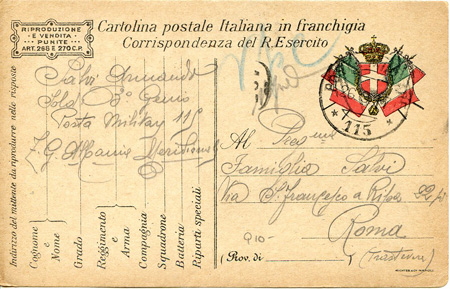 RIPRODUZIONE
E VENDITA
PUNITE
ART. 268 E 270 C.P.
Cartolina postale Italiana in franchigia
Corrispondenza del R. Esercito
Salvi Armando
Sold. 8° Genio
Posta Militar 115
Albania Meridional
115
Al
Famiglia Salvi
Via S. Francesco a Ripa
Roma
(Prov. di (Trastevere)
Indirizzo del mittente da riprodurre nelle risposte
Cognome e Nome
Grado
Reggimento e Arma
Compagnia
Squadrone
Batteria
Riparti speciali